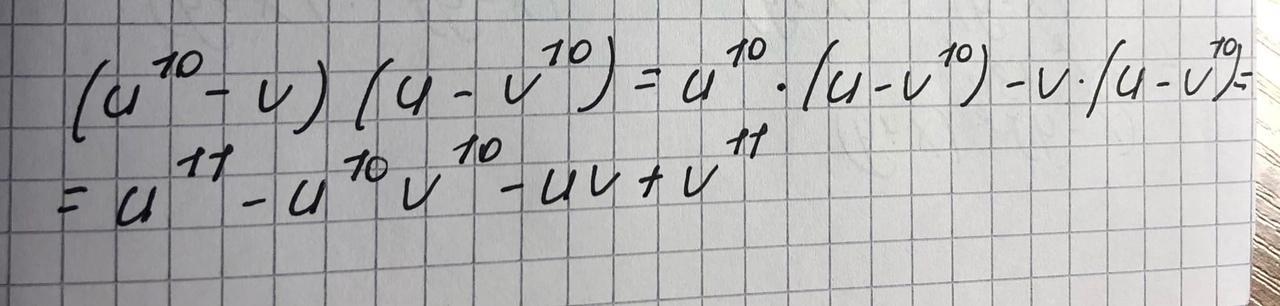 (u¹⁰ - v) (u - v¹⁰) = u¹⁰ · (u - v¹⁰) - v · (u - v¹⁰) =
= u¹¹ - u¹⁰ v¹⁰ - uv + v¹¹